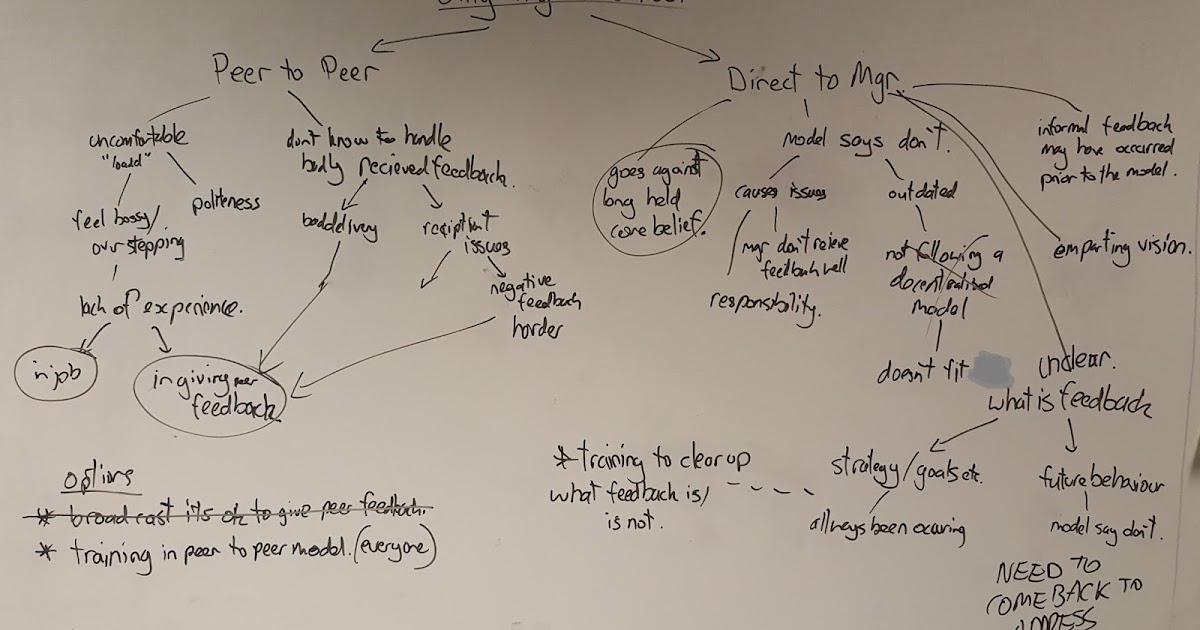 Peer to Peer
uncomfortable
"loadd"
feel bossy/
overstepping
politeness
lack of experience.
in job
in giving peer
feedback
dont know to handle
badly recieved feedback.
bad delivery
recipient
issues
negative
feedback
harder
Direct to Mgr.
goes against
long held
core belief.
Model says don't.
causes issues
mgr don't recieve
feedback well
responsibility.
outdated
not following a
decentralised
model
doesn't fit
informal feedback
may have occurred
prior to the model.
emparting vision.
Unclear.
what is feedback
strategy/goals etc.
allways been occuring
future behaviour
model say don't.
NEED TO
COME BACK TO
options
* broadcast its ok to give peer feedback.
* training in peer to peer model. (everyone)
* training to clear up
what feedback is/
is not.